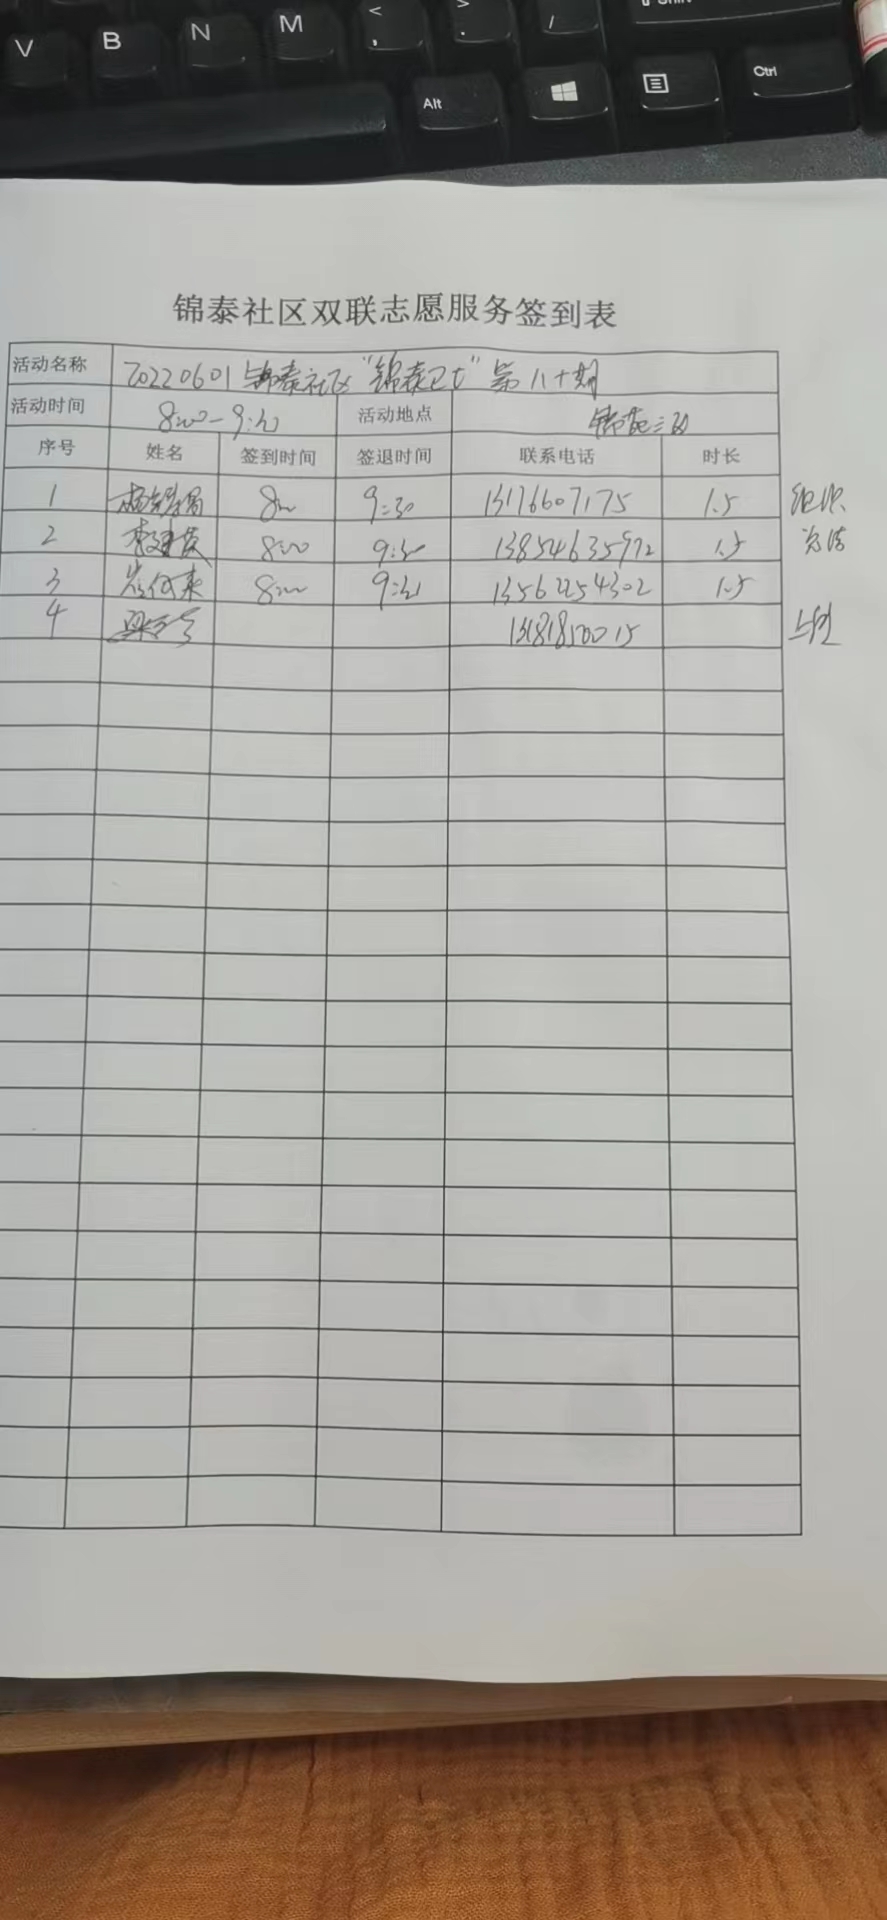 V B N M < , > . / Shift
Alt Ctrl
锦泰社区双联志愿服务签到表
活动名称 20220601锦泰社区"锦泰卫士"第八十期
活动时间 8:00-9:30 活动地点 锦苑三区
序号 姓名 签到时间 签退时间 联系电话 时长
1 8:00 9:30 13176607175 1.5 组织
2 8:00 9:30 13854635972 1.5
3 8:00 9:30 13562254302 1.5
4 13181850015 上传